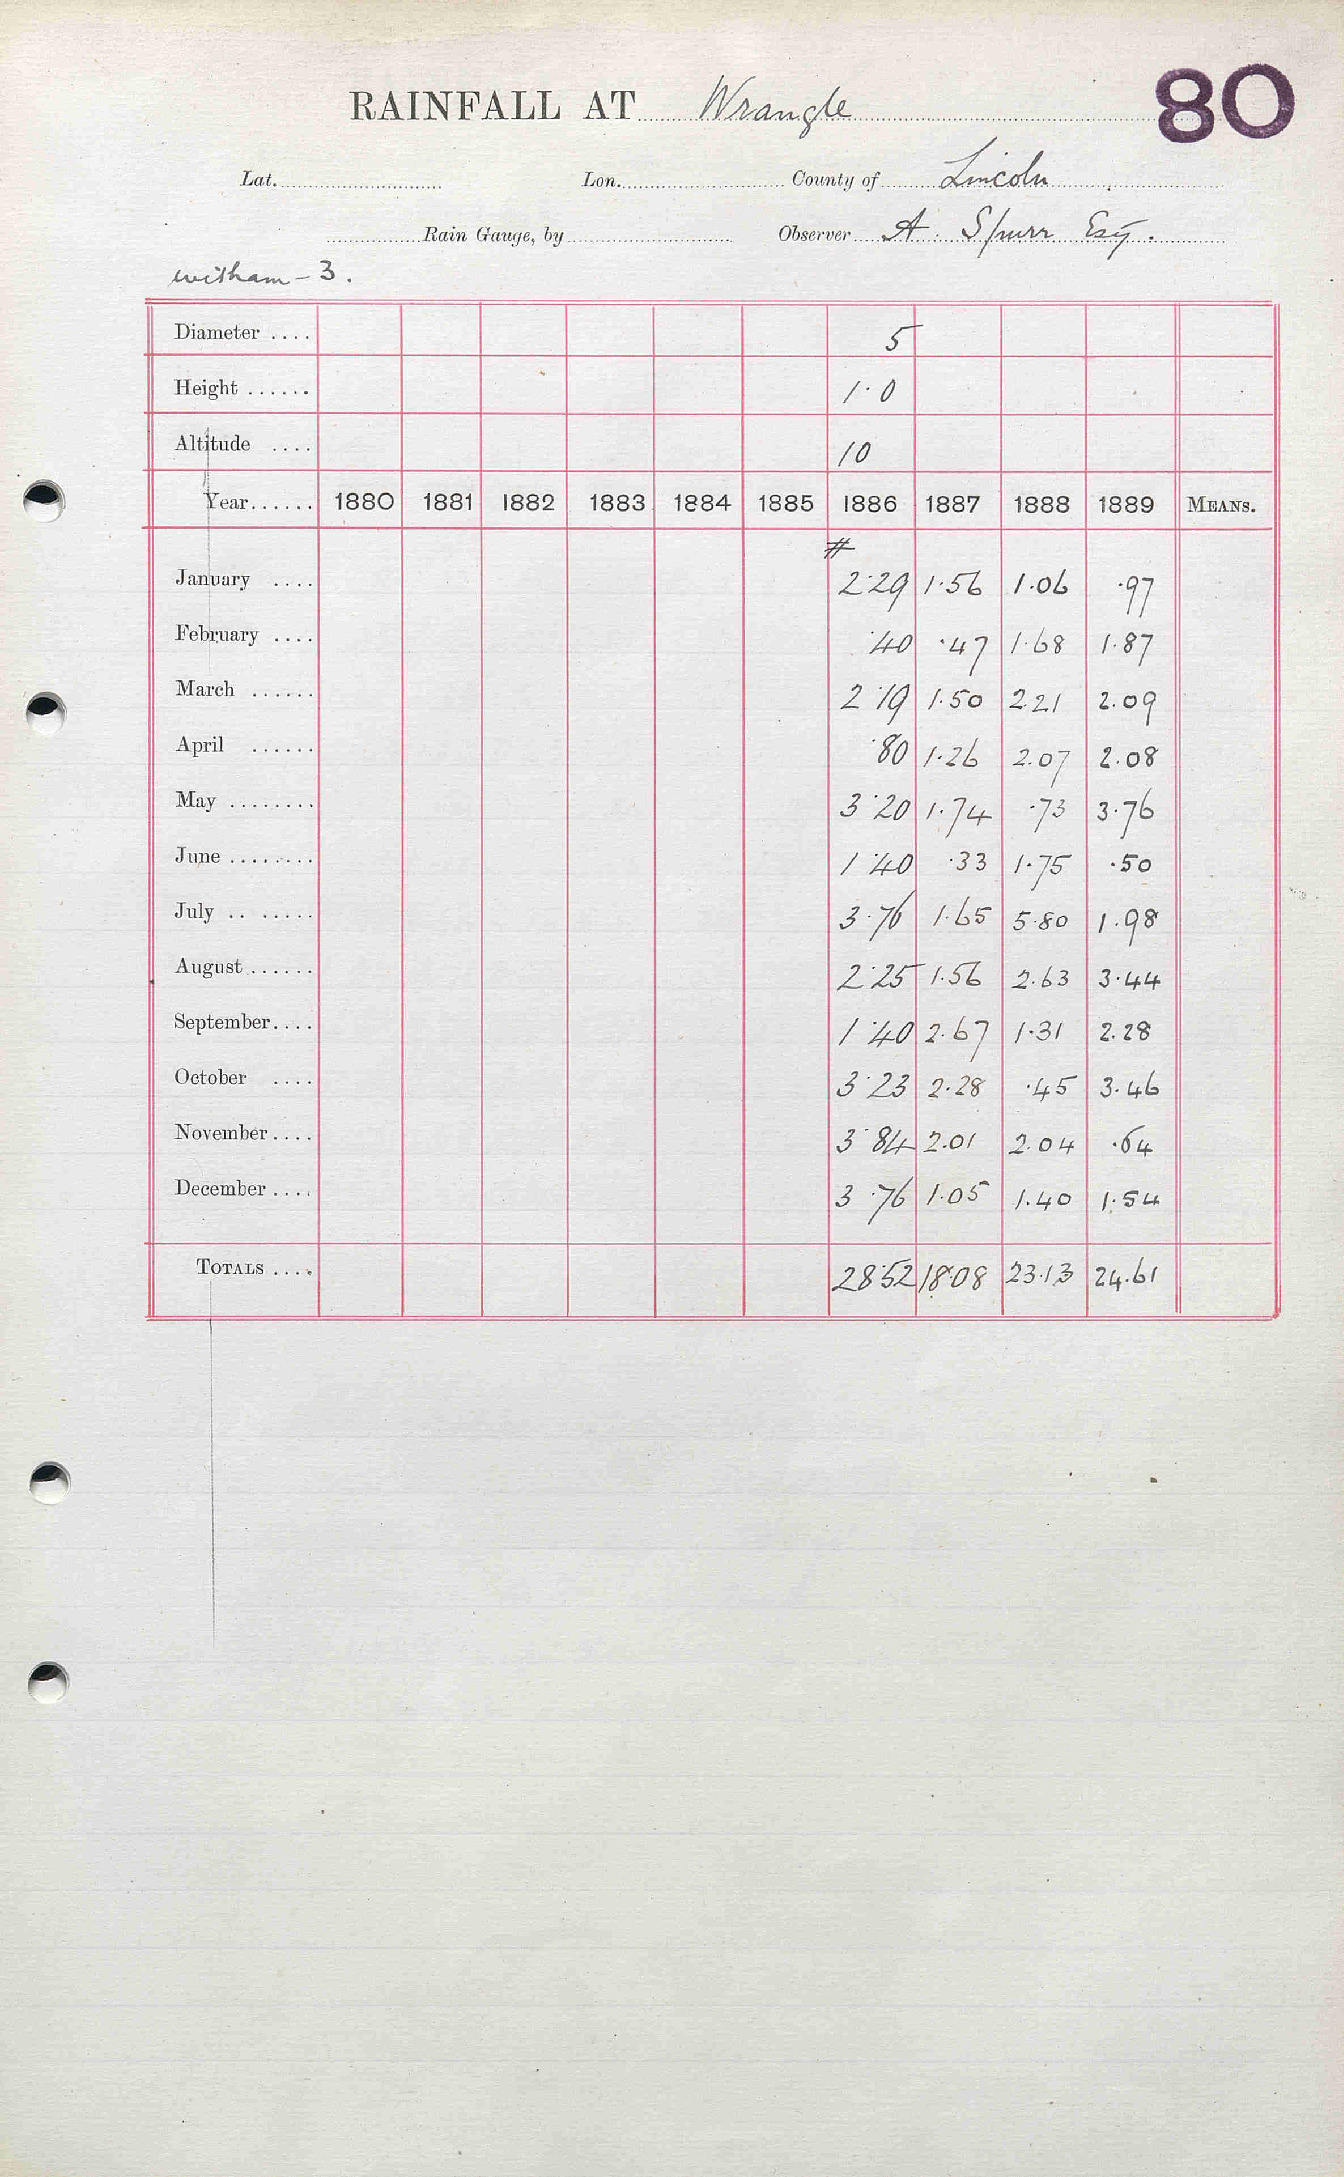 80
RAINFALL AT Wrangle
Lat. Lon. County of Lincoln
Rain Gauge, by Observer A. Spurr Esq.
Witham - 3.
Diameter .... 5
Height ...... 1.0
Altitude .... 10
Year...... 1880 1881 1882 1883 1884 1885 1886 1887 1888 1889 MEANS.
#
January .... 2.29 1.56 1.06 .97
February .... .40 .47 1.68 1.87
March ...... 2.19 1.50 2.21 2.09
April ...... .80 1.26 2.07 2.08
May ........ 3.20 1.74 .73 3.76
June ........ 1.40 .33 1.75 .50
July .. ..... 3.76 1.65 5.80 1.98
August...... 2.25 1.56 2.63 3.44
September.... 1.40 2.67 1.31 2.28
October .... 3.23 2.28 .45 3.46
November.... 3.84 2.01 2.04 .64
December.... 3.76 1.05 1.40 1.54
TOTALS .... 28.52 18.08 23.13 24.61